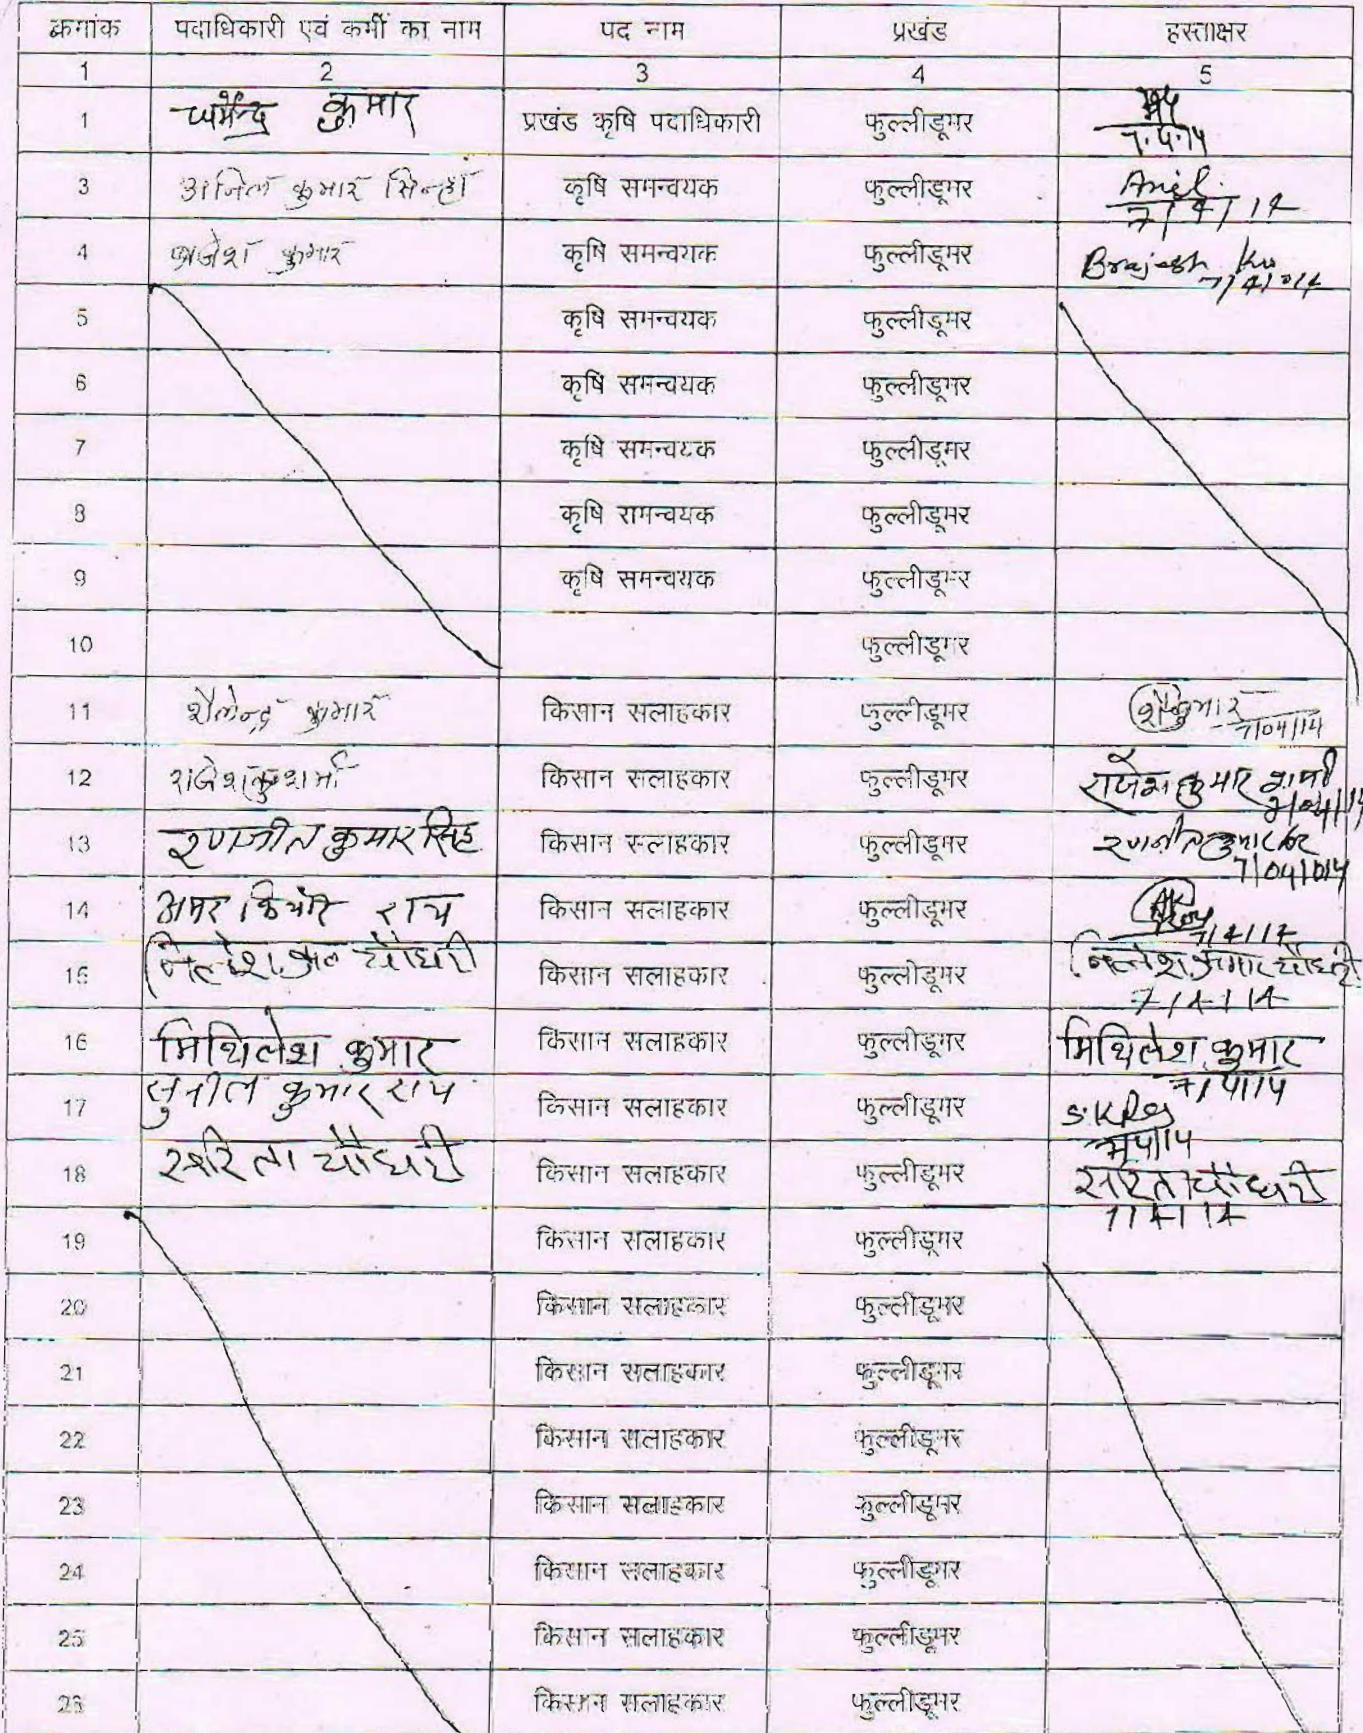 क्रमांक पदाधिकारी एवं कर्मी का नाम पद नाम प्रखंड हस्ताक्षर
1 2 3 4 5
1 धर्मेन्द्र कुमार प्रखंड कृषि पदाधिकारी फुल्लीडूमर 7.4.14
3 अनिल कुमार सिन्हा कृषि समन्वयक फुल्लीडूमर Anil 7/4/14
4 ब्रजेश कुमार कृषि समन्वयक फुल्लीडूमर Brajesh Ku 7/4/014
5 कृषि समन्वयक फुल्लीडूमर
6 कृषि समन्वयक फुल्लीडूमर
7 कृषि समन्वयक फुल्लीडूमर
8 कृषि समन्वयक फुल्लीडूमर
9 कृषि समन्वयक फुल्लीडूमर
10 फुल्लीडूमर
11 शैलेन्द्र कुमार किसान सलाहकार फुल्लीडूमर 7/04/14
12 राजेश कु शर्मा किसान सलाहकार फुल्लीडूमर राजेश कुमार शर्मा 7/04/14
13 रणजीत कुमार सिंह किसान सलाहकार फुल्लीडूमर रणजीत कुमार सिंह 7/04/014
14 अमर किशोर राय किसान सलाहकार फुल्लीडूमर AK Roy 7/4/14
15 निलेश कु० चौधरी किसान सलाहकार फुल्लीडूमर निलेश कुमार चौधरी 7/4/14
16 मिथिलेश कुमार किसान सलाहकार फुल्लीडूमर मिथिलेश कुमार 7/4/14
17 सुनील कुमार राय किसान सलाहकार फुल्लीडूमर S.K Roy 7/4/14
18 सरिता चौधरी किसान सलाहकार फुल्लीडूमर सरिता चौधरी 7/4/14
19 किसान सलाहकार फुल्लीडूमर
20 किसान सलाहकार फुल्लीडूमर
21 किसान सलाहकार फुल्लीडूमर
22 किसान सलाहकार फुल्लीडूमर
23 किसान सलाहकार फुल्लीडूमर
24 किसान सलाहकार फुल्लीडूमर
25 किसान सलाहकार फुल्लीडूमर
26 किसान सलाहकार फुल्लीडूमर